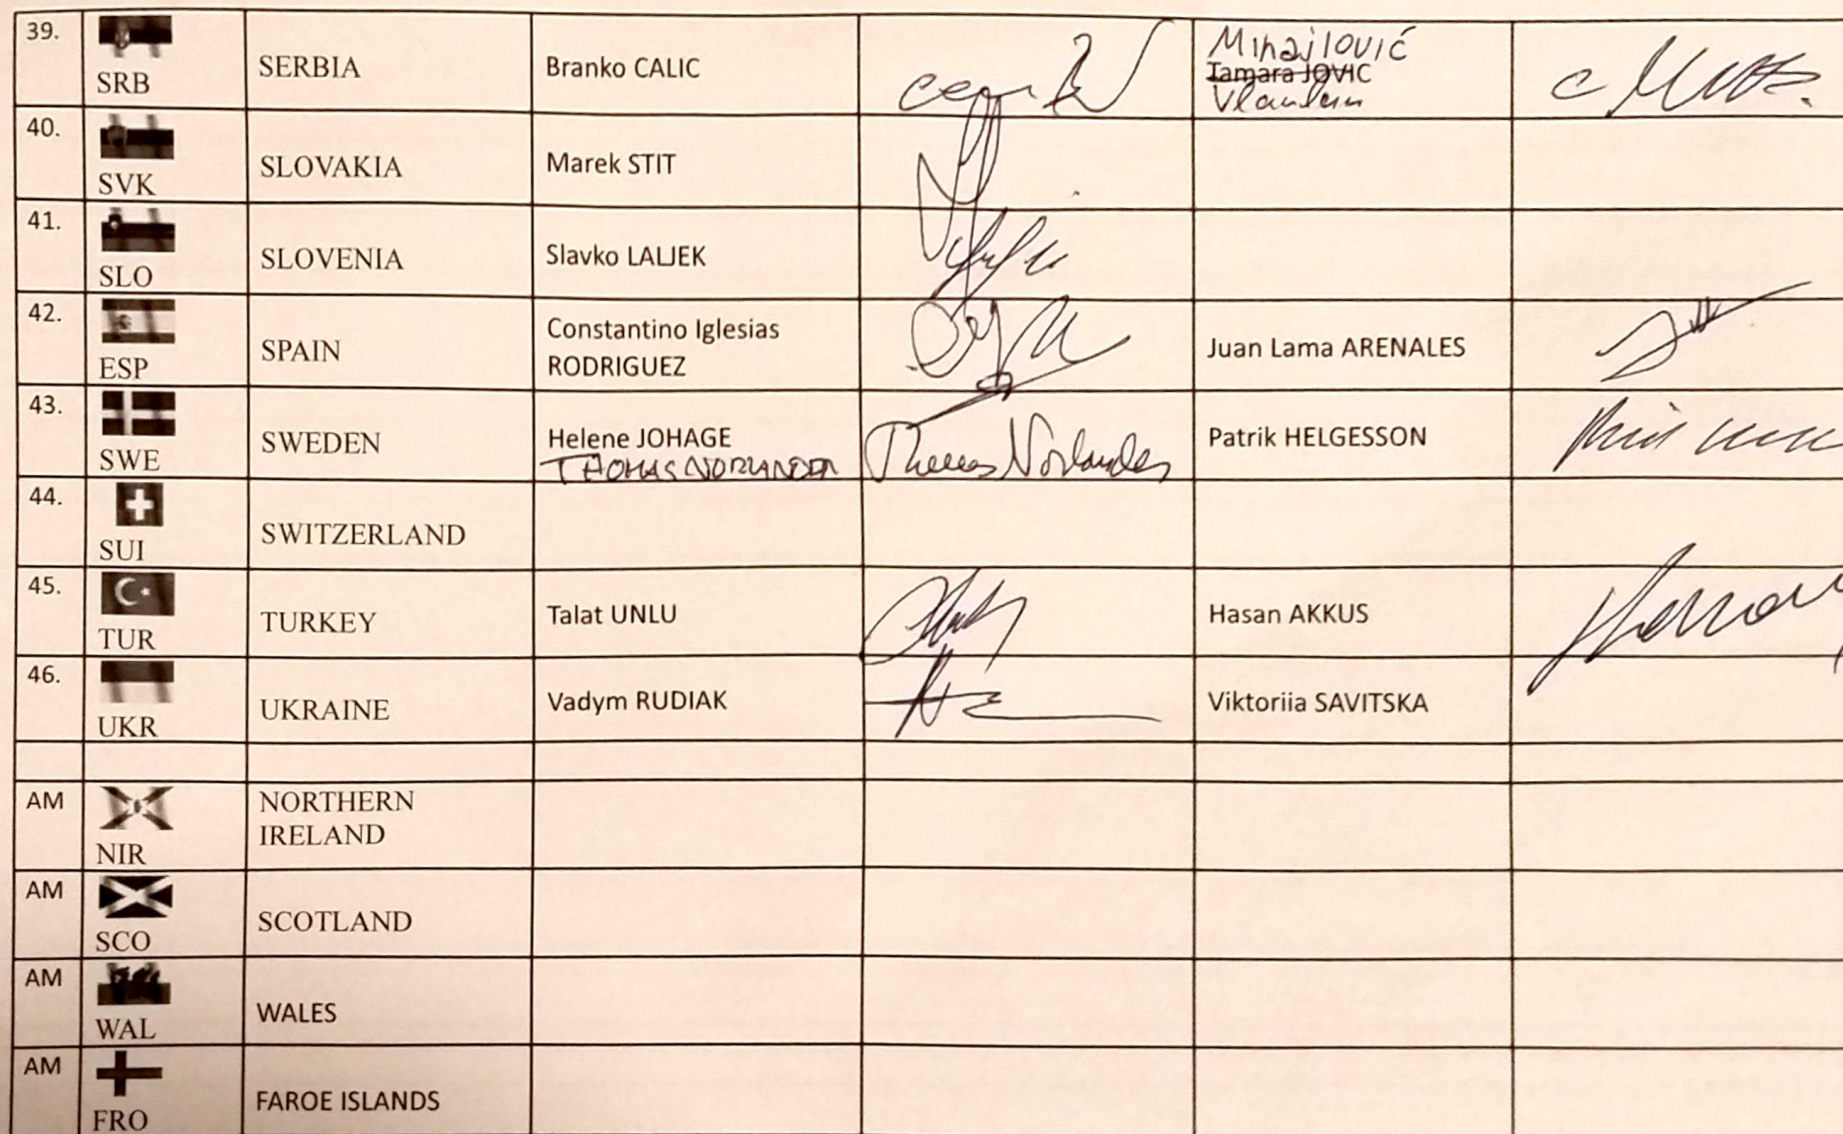 39.
SRB
SERBIA
Branko CALIC
Mihajlović
Tamara JOVIC
40.
SVK
SLOVAKIA
Marek STIT
41.
SLO
SLOVENIA
Slavko LALJEK
42.
ESP
SPAIN
Constantino Iglesias
RODRIGUEZ
Juan Lama ARENALES
43.
SWE
SWEDEN
Helene JOHAGE
THOMAS NORLANDER
Thomas Norlander
Patrik HELGESSON
44.
SUI
SWITZERLAND
45.
TUR
TURKEY
Talat UNLU
Hasan AKKUS
46.
UKR
UKRAINE
Vadym RUDIAK
Viktoriia SAVITSKA
AM
NIR
NORTHERN
IRELAND
AM
SCO
SCOTLAND
AM
WAL
WALES
AM
FRO
FAROE ISLANDS